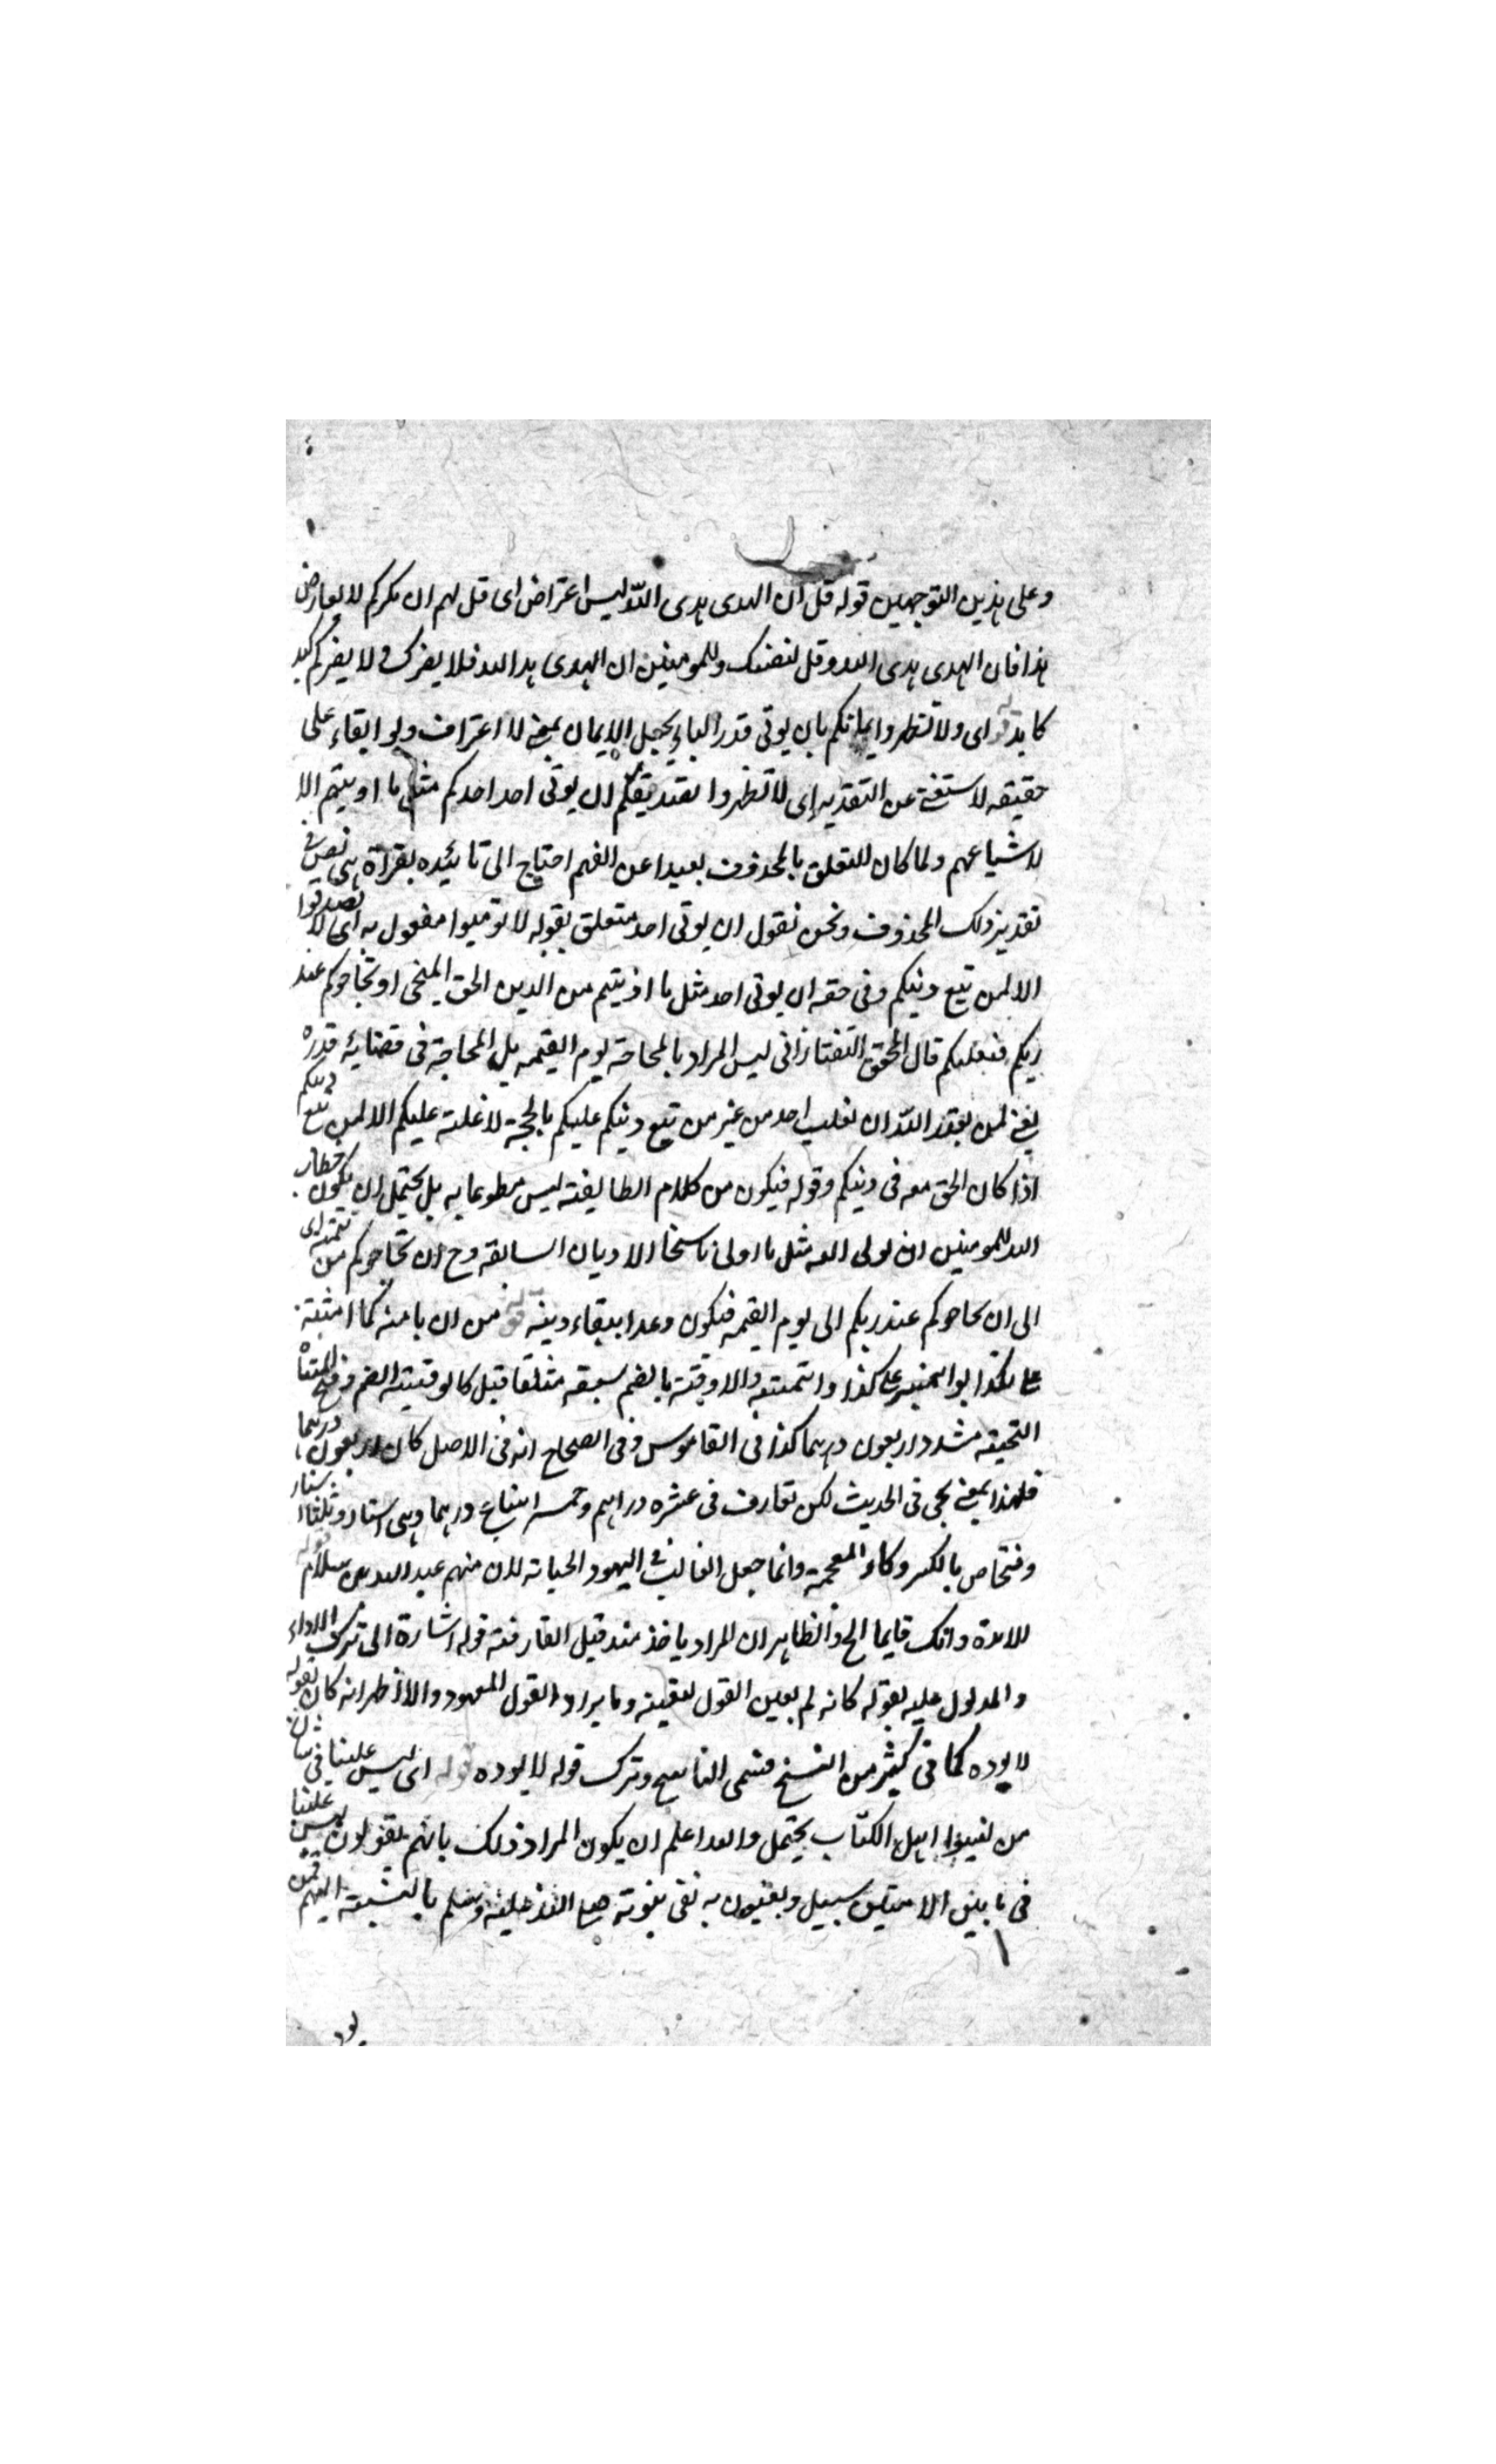 وعلى هذين التوجهين قوله قل ان الهدى هدى الله ليس اعتراض اى قل لهم ان مكركم لا يعارض
هذا فان الهدى هدى الله وقل لنفسك وللمومنين ان الهدى هدا الله فلا يضرك ولا يضركم كيد
كايد قوله اى ولا تظهروا ايمانكم بان يوتى قدر الباء بجعل الايمان بمعنى الاعتراف ولو ابقاء على
حقيقه لاستغنى عن التقدير اى لا تظهروا تصديقكم ان يوتى احد احدكم مثل ما اوتيتم الا
لاشياعهم ولما كان للتعلق بالمحذوف بعيدا عن الفهم احتاج الى تائيده بقراة هى نص فى
تقدير ذلك المحذوف ونحن نقول ان يوتى احد متعلق بقوله لا تومنوا مفعول به اى لا تصدقوا
الا لمن تبع دينكم وفى حقه ان يوتى احد مثل ما اوتيتم من الدين الحق المنجى او يحاجوكم عند
ربكم فيغلبكم قال المحقق التفتازانى ليس المراد بالمحاجة يوم القيمه بل المحاجة فى قضايه قدره
يعنى لمن يقدر الله ان يغلب احد من غير من تبع دينكم عليكم بالحجة لا غلبة عليكم الا لمن تبع دينكم
اذا كان الحق معه فى دينكم وقوله فيكون من كلام الطايفة ليس مطوعا به بل يحتمل ان يكون خطاب
الله للمومنين ان يولى الله مثل ما اولى ناسخا الاديان السابقه وح ان يحاجوكم من تتمته اى
الى ان يحاجوكم عند ربكم الى يوم القيمه فيكون وعدا ببقاء دينه قوله من ان يامنه كما امنته
على كذا وائتمنته والاوقية بالضم سبعه مثلقا قيل كالوقية الضم وفتح المثناه
التحتيه مشدد اربعون درهما كذا فى القاموس وفى الصحاح انه فى الاصل كان اربعون درهما
فلهذا بمعنى يجى فى الحديث لكن تعارف فى عشره دراهم وخمسه اسباع درهما وهى استار وثلثا استار
وفنحاص بالكسر وكاء المعجمة وانما جعل الغالب فى اليهود الخيانه لان منهم عبد الله بن سلام قوله
وانك قايما الخ والظاهر ان المراد ياخذ منه قبل المفارقته قوله اشارة الى ترك الاداء
والمدلول عليه بقوله كانه لم يعين القول لتعينه وما يراد القول المعهود والا اظهرانه كان بقوله
لا يوده كما فى كثير من النسخ الناسخ وترك قوله لا يوده قوله اى ليس علينا فى شان
من ليسوا اهل الكتاب يحتمل والله اعلم ان يكون المراد ذلك بانهم يقولون ليس علينا
فى ما بين الاميين سبيل ويعنون به نفى نبوته صلى الله عليه وسلم بالنسبة اليهم فمن